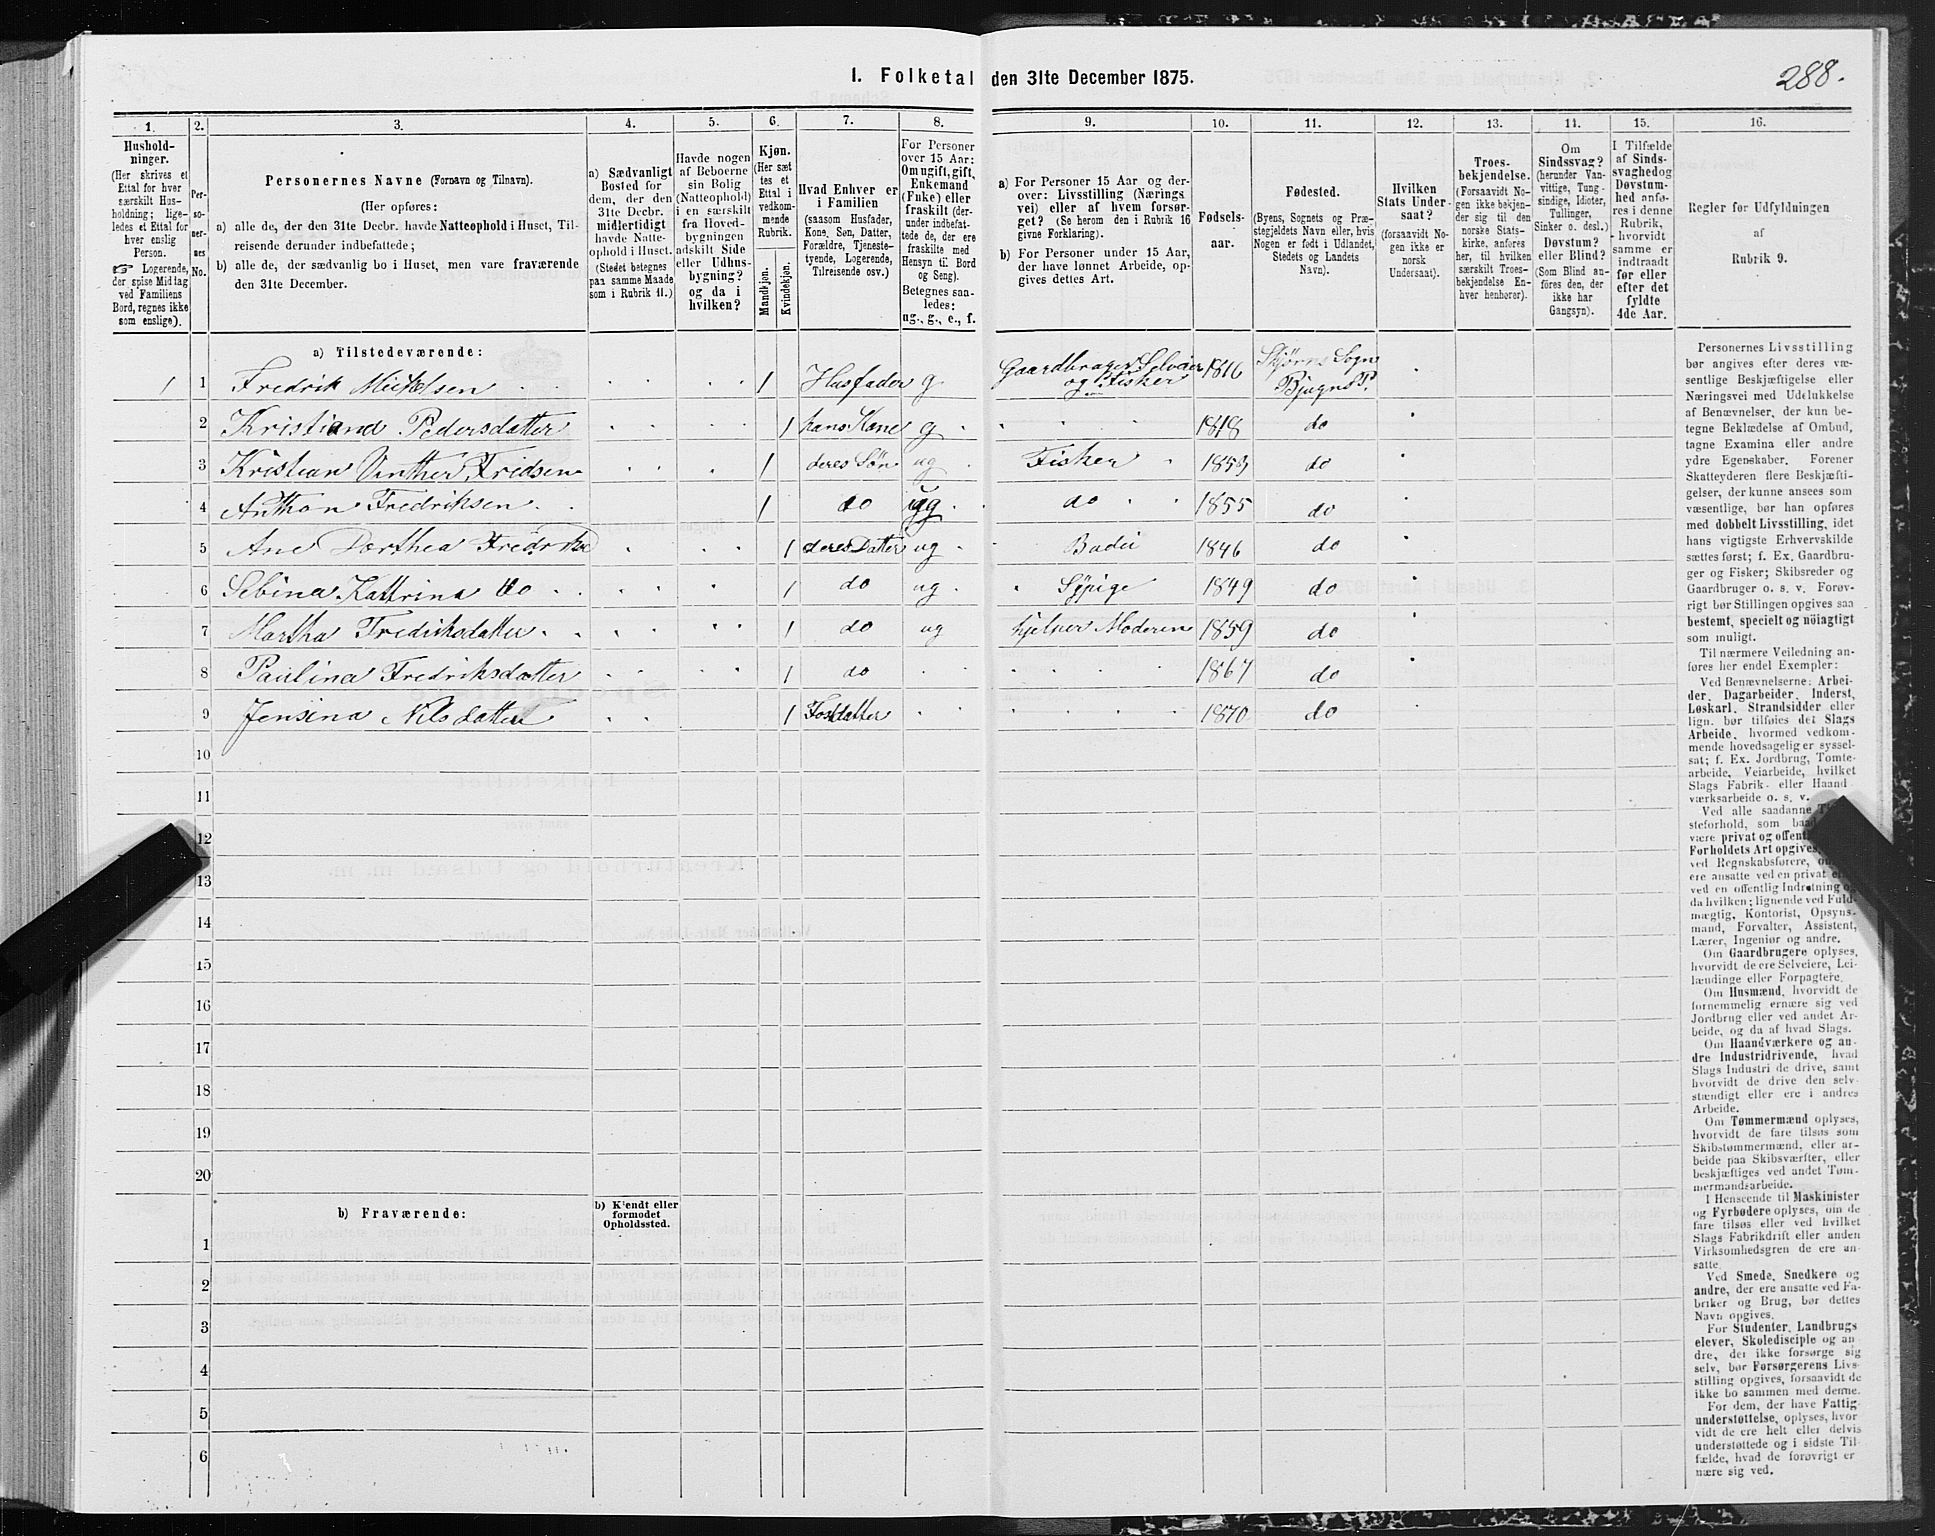 288.
1. Folketal den 31te December 1875.
1. 2. 3. 4. 5. 6. 7. 8. 9. 10. 11. 12. 13. 14. 15. 16.
Hushold-
ninger.
(Her skrives et
Ettal for hver
særskilt Hus-
holdning; lige-
ledes et Ettal for
hver enslig
Person.
☞ Logerende,
der spise Middag
ved Familiens
Bord, regnes ikke
som enslige).
Per-
so-
ner-
nes
No.
Personernes Navne (Fornavn og Tilnavn).
(Her opføres:
a) alle de, der den 31te Decbr. havde Natteophold i Huset, Til-
reisende derunder indbefattede;
b) alle de, der sædvanlig bo i Huset, men vare fraværende
den 31te December.
a) Sædvanligt
Bosted for
dem, der den
31te Decbr.
midlertidigt
havde Natte-
ophold i Huset.
(Stedet betegnes
paa samme Maade
som i Rubrik 11.)
Havde nogen
af Beboerne
sin Bolig
(Natteophold)
i en særskilt
fra Hoved-
bygningen
adskilt Side
eller Udhus-
bygning?
og da i
hvilken?
Kjøn.
(Her sæt
tes et
Ettal i
vedkom-
mende
Rubrik.
Mandkjøn.
Kvindekjøn.
Hvad Enhver er
i Familien
(saasom Husfader,
Kone, Søn, Datter,
Forældre, Tjeneste-
tyende, Logerende,
Tilreisende osv.)
For Personer
over 15 Aar:
Om ugift, gift,
Enkemand
(Enke) eller
fraskilt (der-
under indbefat-
tede de, der ere
fraskilte med
Hensyn til Bord
og Seng).
Betegnes saa-
ledes:
ug., g., e., f.
a) For Personer 15 Aar og der-
over: Livsstilling (Nærings
vei) eller af hvem forsør-
get? (Se herom den i Rubrik 16
givne Forklaring).
b) For Personer under 15 Aar,
der have lønnet Arbeide, op-
gives dettes Art.
Fødsels-
aar.
Fødested.
(Byens, Sognets og Præ-
stegjeldets Navn eller, hvis
Nogen er født i Udlandet,
Stedets og Landets
Navn).
Hvilken
Stats Under-
saat?
(forsaavidt No-
gen ikke er
norsk
Undersaat).
Troes-
bekjendelse.
(Forsaavidt No-
gen ikke bekjen-
der sig til den
norske Stats-
kirke, anføres
her, til hvilken
særskilt Troes-
bekjendelse En-
hver henhører).
Om
Sindssvag?
(herunder Van-
vittige, Tung-
sindige, Idioter,
Tullinger,
Sinker o. desl.)
Døvstum?
eller Blind?
(Som Blind an-
føres den, der
ikke har
Gangsyn).
I Tilfælde
af Sinds-
svaghed og
Døvstum-
hed anfø-
res i denne
Rubrik,
hvorvidt
samme er
indtraadt
før eller
efter det
fyldte
4de Aar.
Regler for Udfyldningen
af
Rubrik 9.
a) Tilstedeværende:
1 1 Fredrik Mickelsen 1 Husfader g Gaardbruger Selveier og Fisker 1816 Skjørns Sogn Bjugns P.
2 Kristiand Pedersdatter 1 hans Kone g 1818 do
3 Kristian Vinther Fridsen 1 deres Søn ug Fisker 1853 do
4 Anthon Fredriksen 1 do ug do 1855 do
5 Ane Dorthea 1 deres Datter ug Budei 1846 do
6 Sebina Kattrina do 1 do ug Sypige 1849 do
7 Martha Fredriksdatter 1 do ug hjelper Moderen 1859 do
8 Paulina Fredriksdatter 1 do 1867 do
9 Jensina Nilsdatter 1 Fosdatter 1870 do
10
11
12
13
14
15
16
17
18
19
20
b) Fraværende:
b) Kjendt eller
formodet
Opholdssted.
1
2
3
4
5
6
Personernes Livsstilling
bør angives efter deres væ-
sentlige Beskjæftigelse eller
Næringsvei med Udelukkelse
af Benævnelser, der kun be-
tegne Beklædelse af Ombud,
tagne Examina eller andre
ydre Egenskaber. Forener
Skatteyderen flere Beskjæfti-
gelser, der kunne ansees som
væsentlige, bør han opføres
med dobbelt Livsstilling, idet
hans vigtigste Erhvervskilde
sættes først; f. Ex. Gaardbru-
ger og Fisker; Skibsreder og
Gaardbruger o. s. v. Forøv-
rigt bør Stillingen opgives saa
bestemt, specielt og nöiagtigt
som muligt.
Til nærmere Veiledning an-
føres her endel Exempler:
Ved Benævnelserne: Arbei-
der, Dagarbeider, Inderst,
Løskarl, Strandsidder eller
lign. bør tilføies det Slags
Arbeide, hvormed vedkom-
mende hovedsagelig er syssel-
sat; f. Ex. Jordbrug, Tomte-
arbeide, Veiarbeide, hvilket
Slags Fabrik- eller Haand
værksarbeide o. s. v.
Ved alle saadanne
steforhold, som
være privat og
Forholdets Art opgives
ved Regnskabsførere,
ere ansatte ved en privat
ved en offentlig Indretning og
da hvilken; lignende ved Fuld-
mægtig, Kontorist, Opsyns-
mand, Forvalter, Assistent,
Lærer, Ingeniør og andre.
Om Gaardbrugere oplyses,
hvorvidt de ere Selveiere, Lei-
lændinge eller Forpagtere.
Om Husmænd, hvorvidt de
fornemmelig ernære sig ved
Jordbrug eller ved andet Ar-
beide, og da af hvad Slags.
Om Haandværkere og an-
dre Industridrivende, hvad
Slags Industri de drive, samt
hvorvidt de drive den selv-
stændigt eller ere i andres
Arbeide.
Om Tømmermænd oplyses,
hvorvidt de fare tilsøs som
Skibstømmermænd, eller ar-
beide paa Skibsværfter, eller
beskjæftiges ved andet Tøm-
mermandsarbeide.
I Henseende til Maskinister
og Fyrbødere oplyses, om de
fare tilsøs eller ved hvilket
Slags Fabrikdrift eller anden
Virksomhedsgren de ere an-
satte.
Ved Smede, Snedkere og
andre, der ere ansatte ved Fa-
briker og Brug, bør dettes
Navn opgives.
For Studenter, Landbrugs
elever, Skoledisciple og an-
dre, der ikke forsørge sig
selv, bør Forsørgerens Livs-
stilling opgives, forsaavidt de
ikke bo sammen med denne.
For dem, der have Fattig-
understøttelse, oplyses, hvor
vidt de ere helt eller delvis
understøttede og i sidste Til-
fælde, hvad de forøvrigt er
nære sig ved.